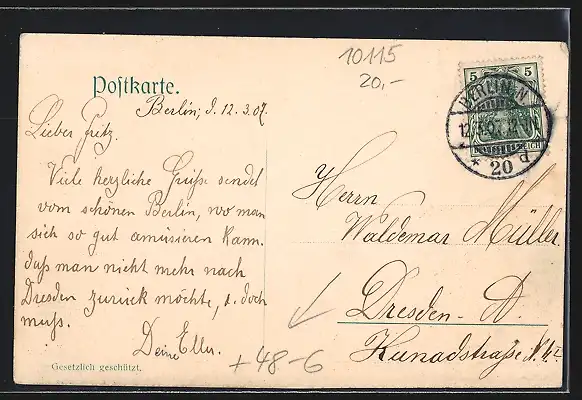 10115
20,-
Postkarte.
Berlin, d. 12.3.07.
Lieber Fritz.
Viele herzliche Grüße sendet
vom schönen Berlin, wo man
sich so gut amüsieren kann.
daß man nicht mehr nach
Dresden zurück möchte, u. doch
muss.
Deine
+48-6
Gesetzlich geschützt.
5 5
BERLIN N.
12.3.07. 12
* 20 d
Herrn
Waldemar Müller.
Dresden-A.
Kunadstraße N.